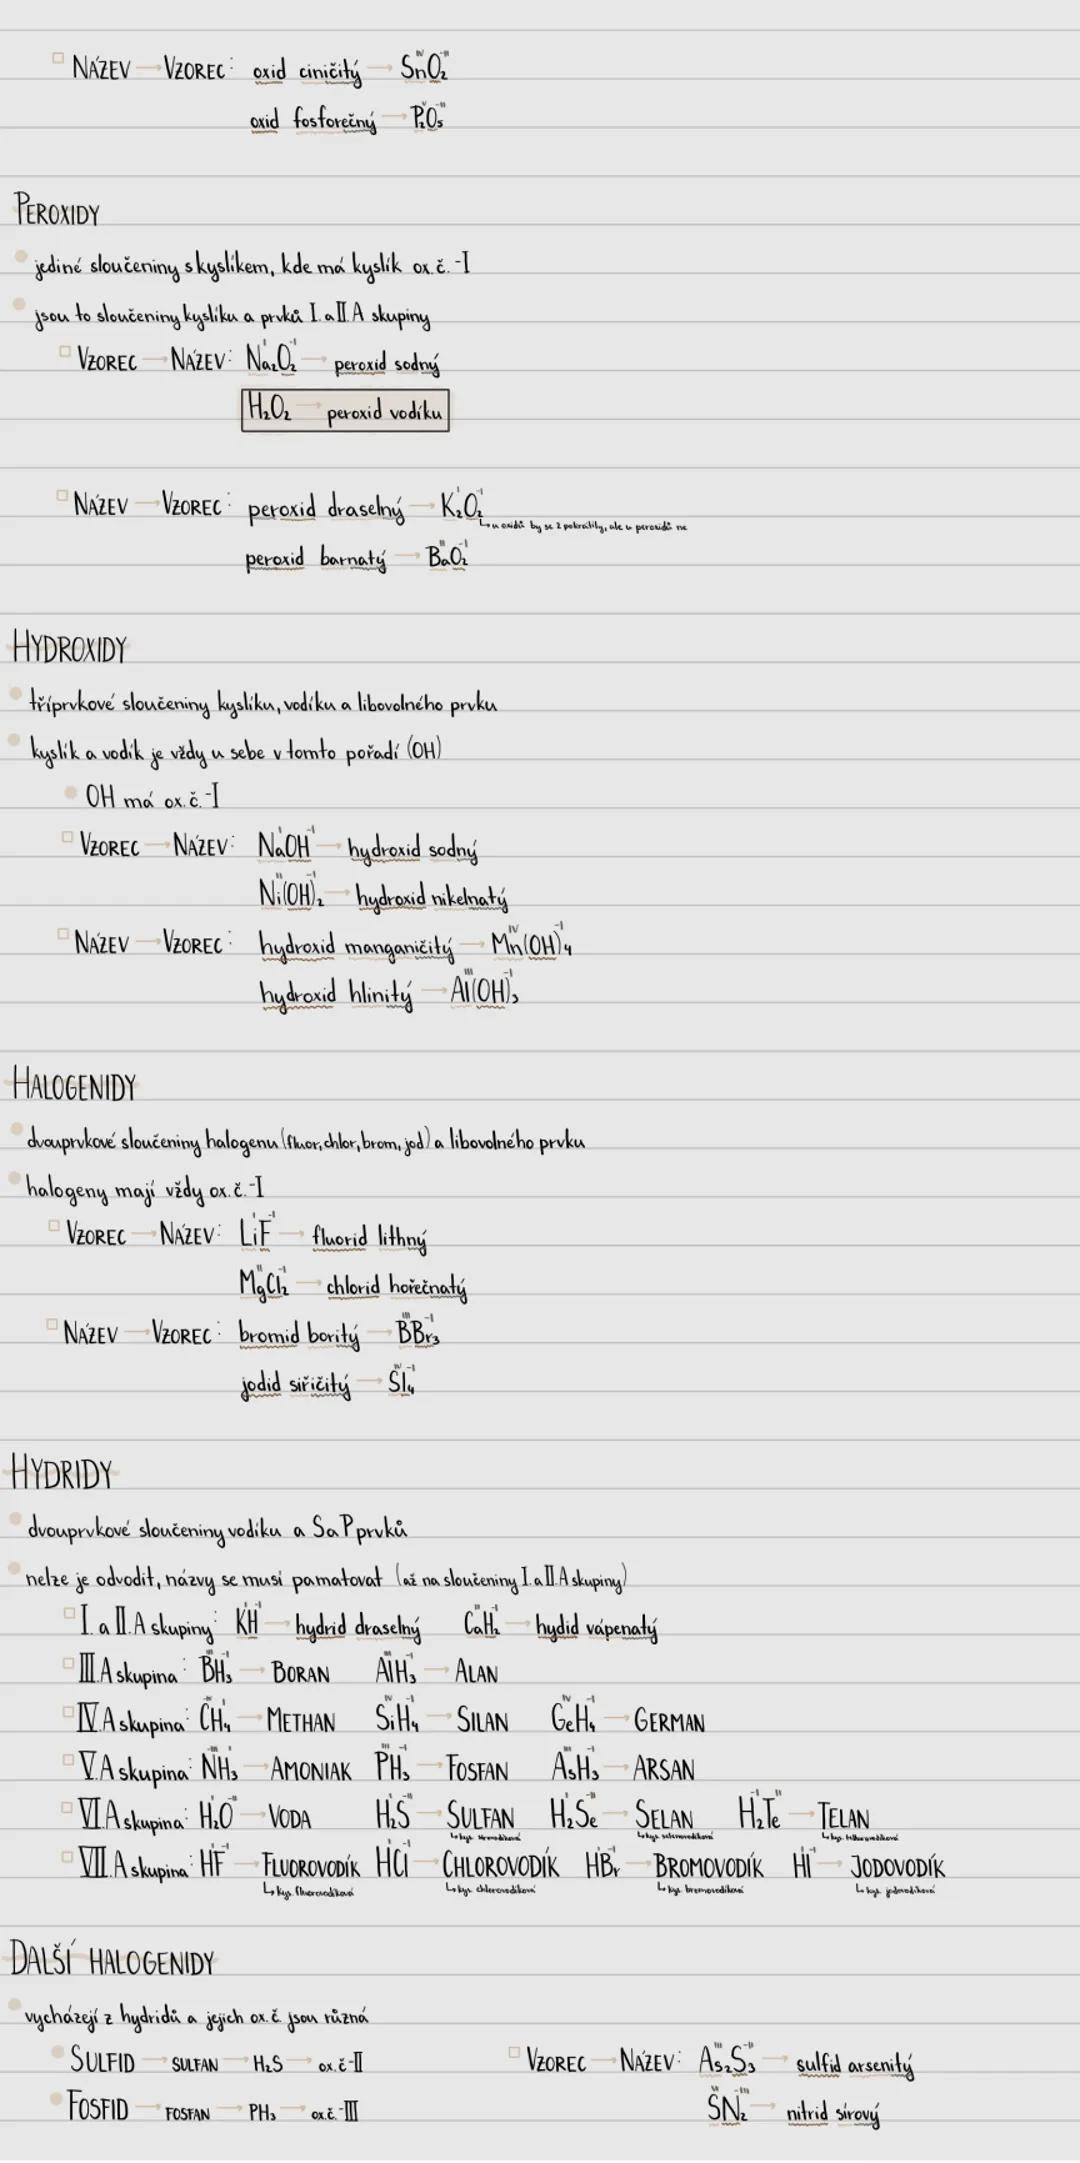 NÁZEV → VZOREC: oxid ciničitý → Sn^IV O₂^-II
oxid fosforečný → P₂^V O₅^-II
PEROXIDY
jediné sloučeniny s kyslíkem, kde má kyslík ox.č. -I
jsou to sloučeniny kyslíku a prvků I. a II.A skupiny
VZOREC → NÁZEV: Na₂^I O₂^-I → peroxid sodný
H₂O₂ → peroxid vodíku
NÁZEV → VZOREC: peroxid draselný → K₂^I O₂^-I
↳ u oxidů by se 2 pokrátily, ale u peroxidů ne
peroxid barnatý → Ba^II O₂^-I
HYDROXIDY
tříprvkové sloučeniny kyslíku, vodíku a libovolného prvku
kyslík a vodík je vždy u sebe v tomto pořadí (OH)
OH má ox.č. -I
VZOREC → NÁZEV: Na^I OH^-I → hydroxid sodný
Ni^II (OH)₂^-I → hydroxid nikelnatý
NÁZEV → VZOREC: hydroxid manganičitý → Mn^IV (OH)₄^-I
hydroxid hlinitý → Al^III (OH)₃^-I
HALOGENIDY
dvouprvkové sloučeniny halogenu (fluor, chlor, brom, jod) a libovolného prvku
halogeny mají vždy ox.č. -I
VZOREC → NÁZEV: Li^I F^-I → fluorid lithný
Mg^II Cl₂^-I → chlorid hořečnatý
NÁZEV → VZOREC: bromid boritý → B^III Br₃^-I
jodid siřičitý → S^IV I₄^-I
HYDRIDY
dvouprvkové sloučeniny vodíku a S a P prvků
nelze je odvodit, názvy se musí pamatovat (až na sloučeniny I. a II.A skupiny)
I. a II.A skupiny: K^I H^-I → hydrid draselný Ca^II H₂^-I → hydid vápenatý
III.A skupina: B^III H₃^-I → BORAN Al^III H₃^-I → ALAN
IV.A skupina: CH₄ → METHAN Si^IV H₄^-I → SILAN Ge^IV H₄^-I → GERMAN
V.A skupina: NH₃ → AMONIAK P^III H₃^-I → FOSFAN As^III H₃^-I → ARSAN
VI.A skupina: H₂^I O^-II → VODA H₂^I S^-II → SULFAN H₂^I Se^-II → SELAN H₂^I Te^-II → TELAN
↳ kys. sirovodíková ↳ kys. selenovodíková ↳ kys. tellurovodíková
VII.A skupina: H^I F^-I → FLUOROVODÍK H^I Cl^-I → CHLOROVODÍK H^I Br^-I → BROMOVODÍK H^I I^-I → JODOVODÍK
↳ kys. fluorovodíková ↳ kys. chlorovodíková ↳ kys. bromovodíková ↳ kys. jodovodíková
DALŠÍ HALOGENIDY
vycházejí z hydridů a jejich ox.č. jsou různá
SULFID → SULFAN → H₂S → ox.č. -II VZOREC → NÁZEV: As₂^III S₃^-II → sulfid arsenitý
FOSFID → FOSFAN → PH₃ → ox.č. -III S^VI N₂^-III → nitrid sírový